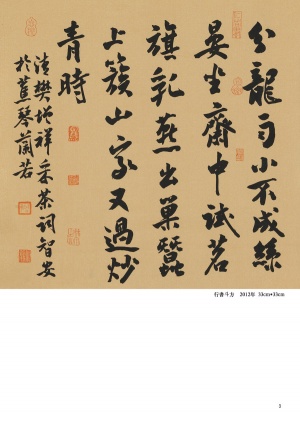 分龍雨小不成絲
晏坐齋中試茗
旗乳燕出巢蠶
上簇山家又過炒
青時
清樊增祥采茶詞智安
於蕉琴蘭若
行書斗方 2012年 33cm×33cm
5